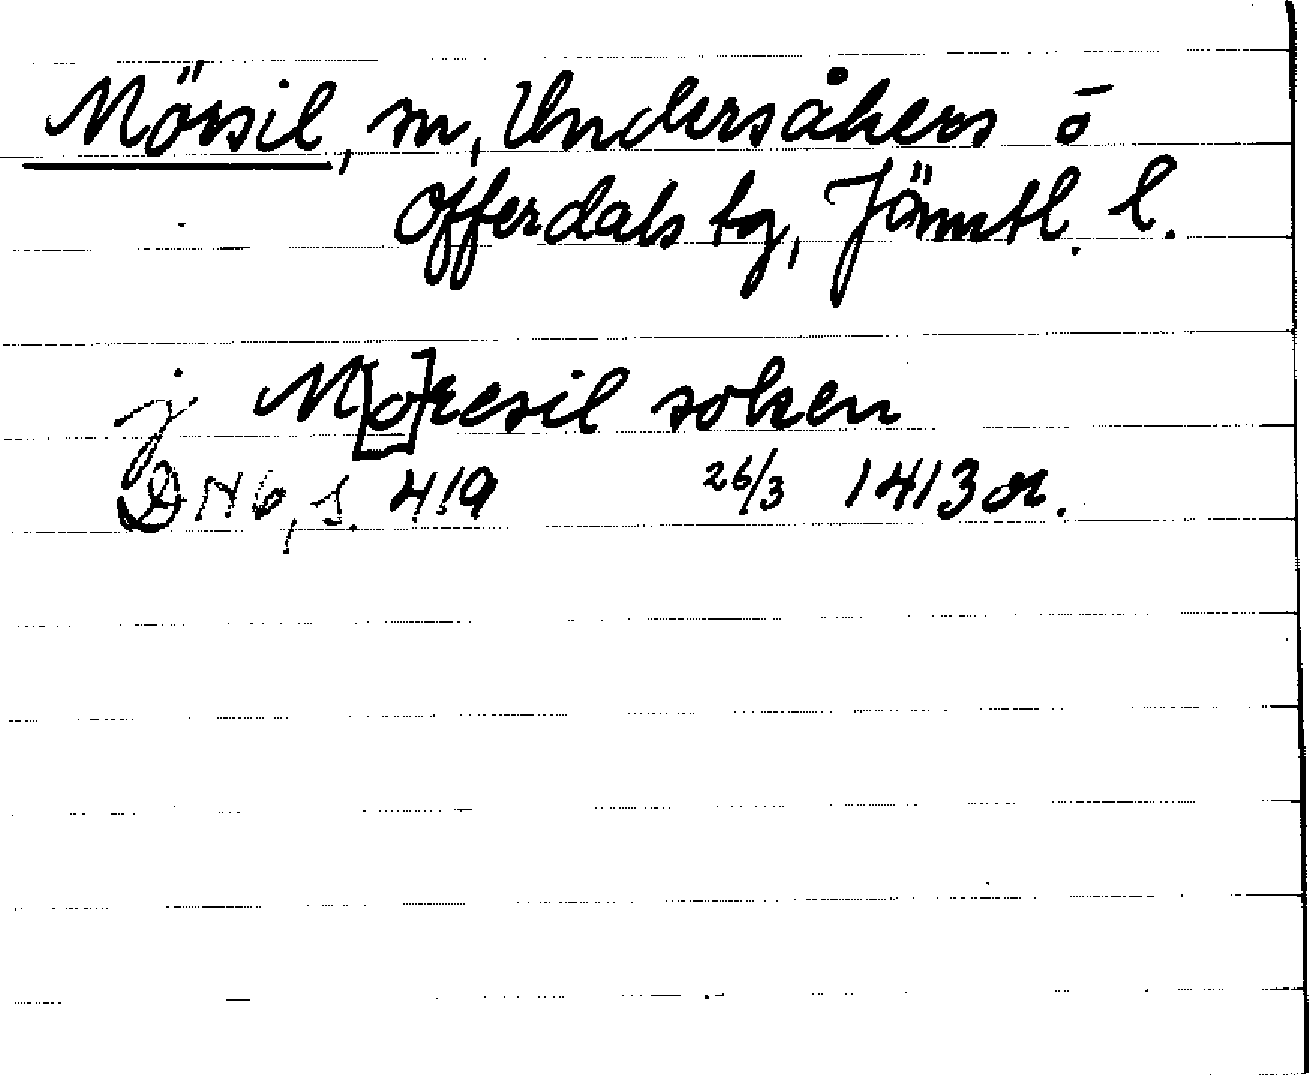 Mörsil, sn, Undersåkers o̅
Offerdals tg, Jämtl. l.
j M[o]resil soken
DN 6, s. 419 26/3 1413 or.